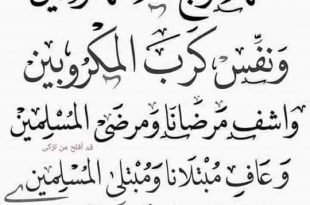 وَنَفِّسْ كَرْبَ المَكْرُوبِين
وَاشْفِ مَرْضَانَا وَمَرْضَى المُسْلِمِين
قد أفلح من تزكى
وَعَافِ مُبْتَلَانَا وَمُبْتَلَى المُسْلِمِين